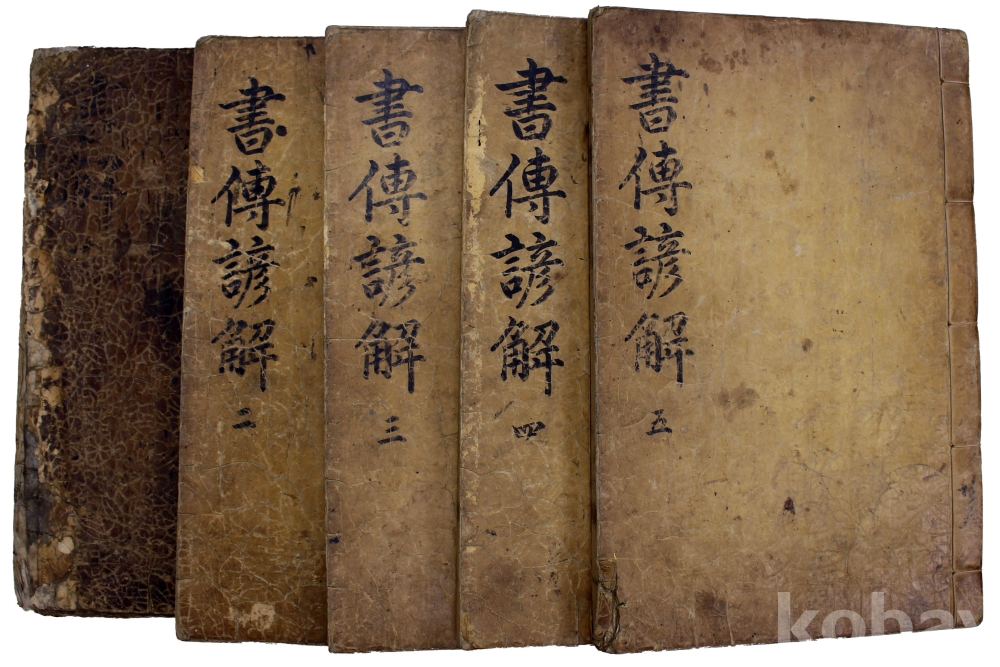 書傳諺解 二
書傳諺解 三
書傳諺解 四
書傳諺解 五
kobay